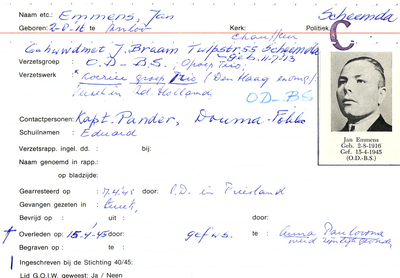 Naam etc.: Emmens, Jan Scheemda
Geboren: 2-8-16 te Kerk: Politiek
chauffeur C
Gehuwd met J. Braam Tulpstr. 55 Scheemda
geb. 11-7-13
Verzetsgroep O.D - B.S. (
Verzetswerk Koerier groep (Den Haag
Zd Holland O.D - B.S
Contactpersonen: Kapt. Pander, Douma-
Schuilnamen : Eduard
Verzetsrapp. ingel. dd. : bij:
Naam genoemd in rapp.:
op bladzijde:
Jan Emmens
Geb. 2-8-1916
Gef. 15-4-1945
(O.D.-B.S.)
Gearresteerd op : 17.4.45 door: S.D. in Friesland
Gevangen gezeten in :
Bevrijd op : uit : door:
† Overleden op : 15-4-45 door: gef w.s. te: Anna Paulowna
Begraven op : te:
Ingeschreven bij de Stichting 40/45:
Lid G.O.I.W. geweest: Ja / Neen